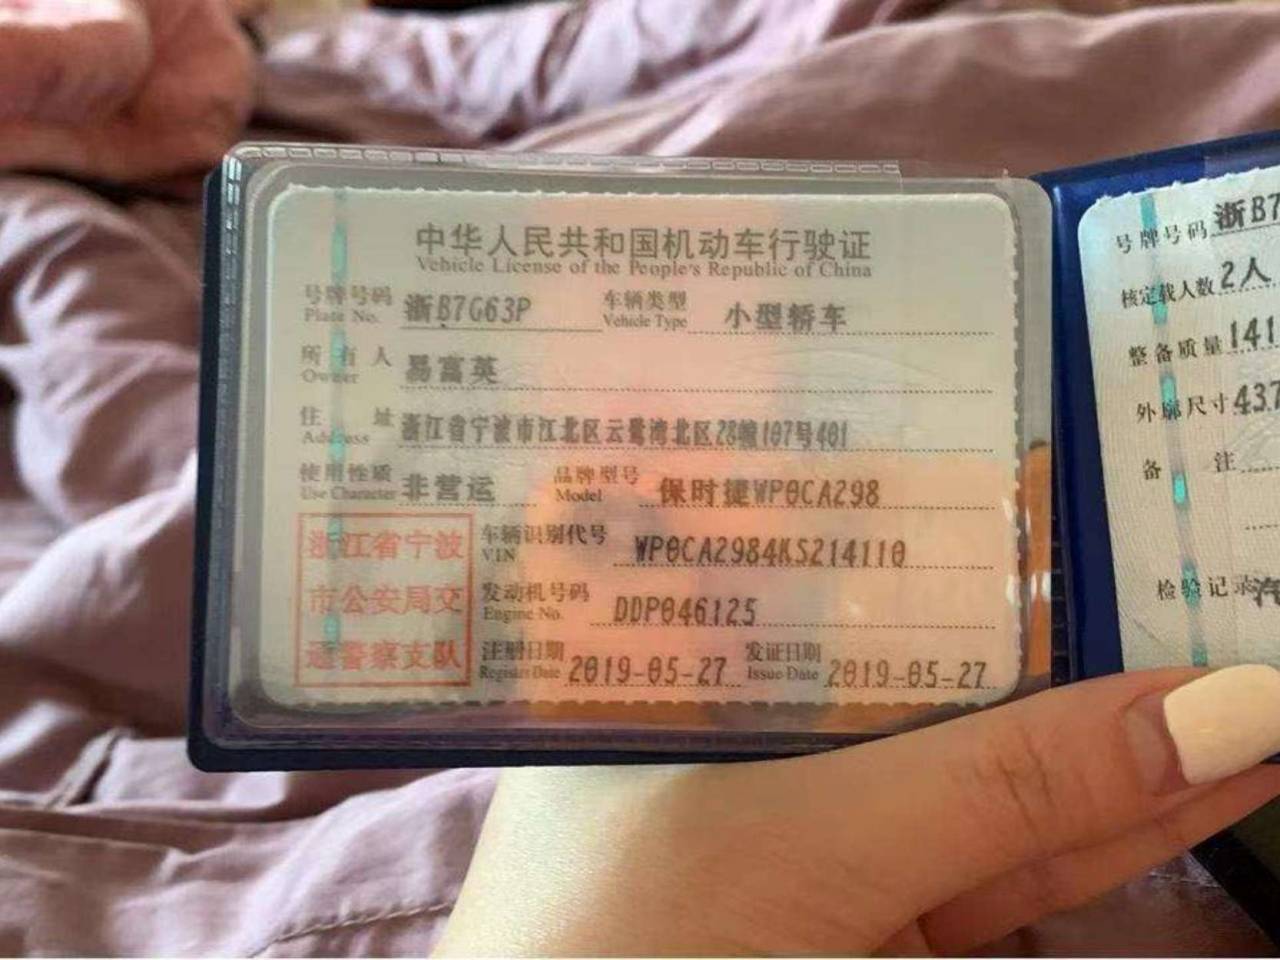 中华人民共和国机动车行驶证
Vehicle License of the People's Republic of China
号牌号码 浙B7G63P 车辆类型 小型轿车
Plate No. Vehicle Type
所有人 易富英
Owner
住址 浙江省宁波市江北区云鹭湾北区28幢107号401
Address
使用性质 非营运 品牌型号 保时捷WP0CA298
Use Character Model
浙江省宁波
市公安局交
通警察支队
车辆识别代号 WP0CA2984KS214110
VIN
发动机号码 DDP046125
Engine No.
注册日期 2019-05-27 发证日期 2019-05-27
Register Date Issue Date
号牌号码 浙B7
核定载人数 2人
整备质量 141
外廓尺寸 437
备注
检验记录 汽